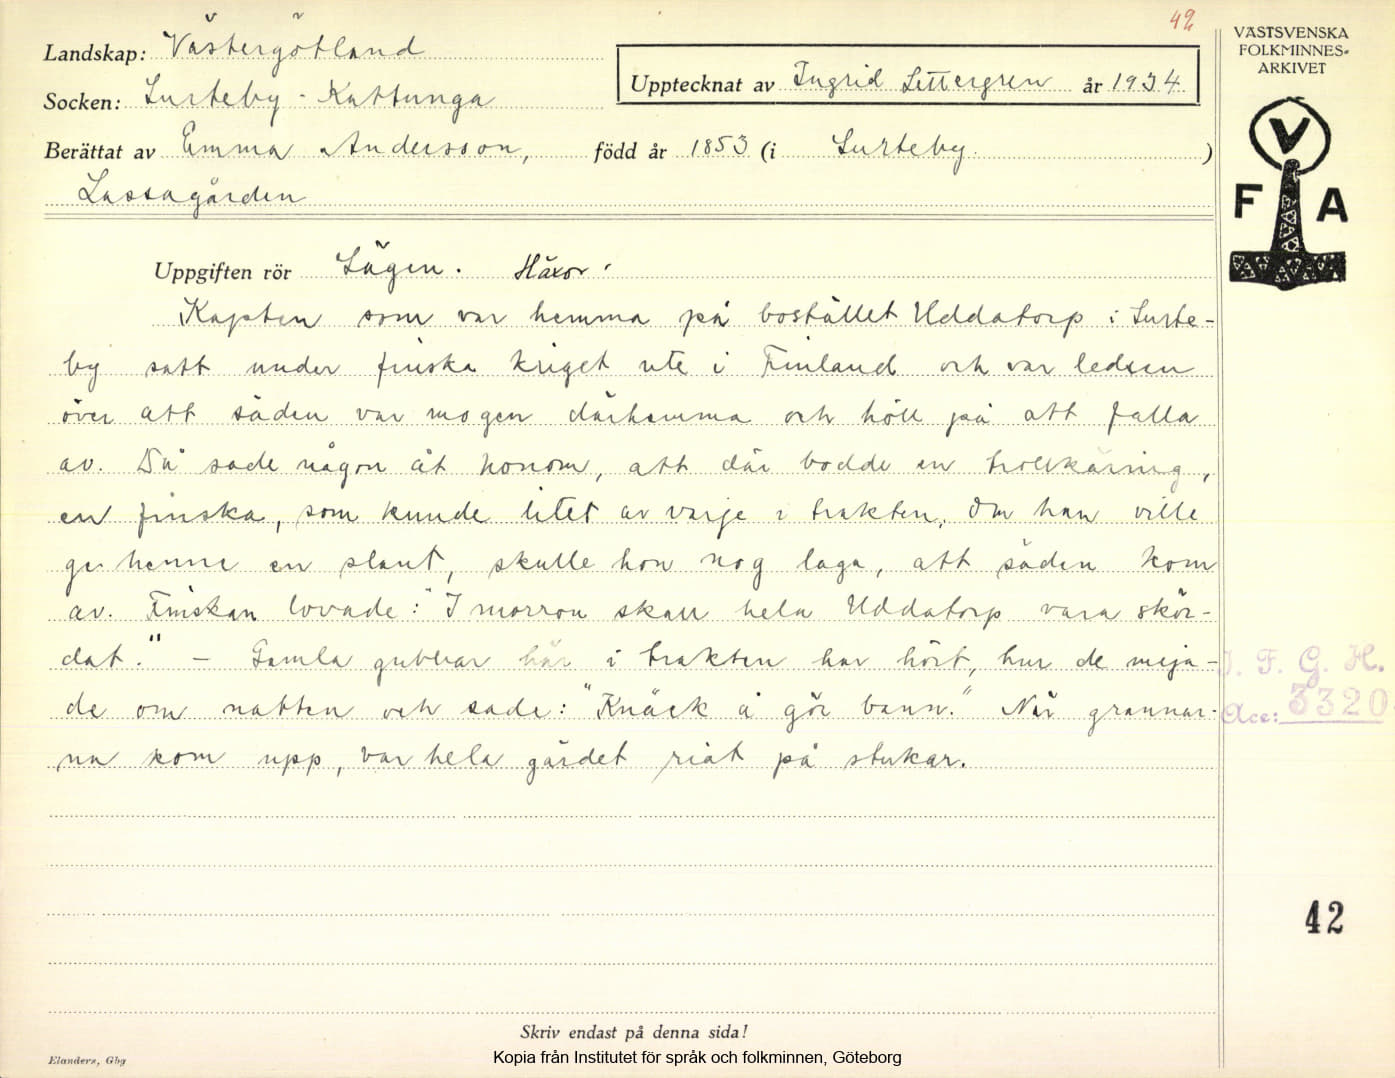 42
Landskap: Västergötland
Socken: Surteby - Kattunga
Upptecknat av Ingrid Settergren år 1934
Berättat av Emma Andersson, född år 1853 (i Surteby.)
Lassagården
VÄSTSVENSKA
FOLKMINNES-
ARKIVET
V
F A
Uppgiften rör Sägen. Häxor.
Kapten som var hemma på bostället Uddatorp i Surte-
by satt under finska kriget ute i Finland och var ledsen
över att säden var mogen därhemma och höll på att falla
av. Då sade någon åt honom, att där bodde en trollkäring,
en finska, som kunde litet av varje i trakten. Om han ville
ge henne en slant, skulle hon nog laga, att säden kom
av. Finskan lovade: "I morron skall hela Uddatorp vara skör-
dat." - Gamla gubbar här i trakten har hört, hur de meja-
de om natten och sade: "Knäck å gör bann." När grannar-
na kom upp, var hela gärdet riat på stukar.
I. F. G. H.
Acc: 3320
42
Skriv endast på denna sida!
Elanders, Gbg
Kopia från Institutet för språk och folkminnen, Göteborg